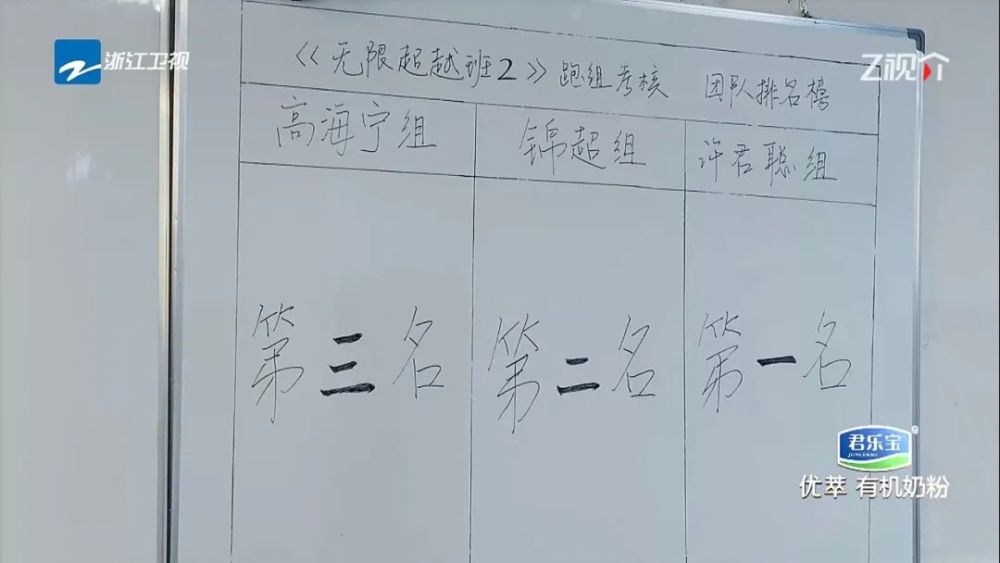 浙江卫视
Z视介
《无限超越班2》跑组考核 团队排名榜
高海宁组 锦超组 许君聪组
第三名 第二名 第一名
君乐宝
JUNLEBAO
优萃 有机奶粉